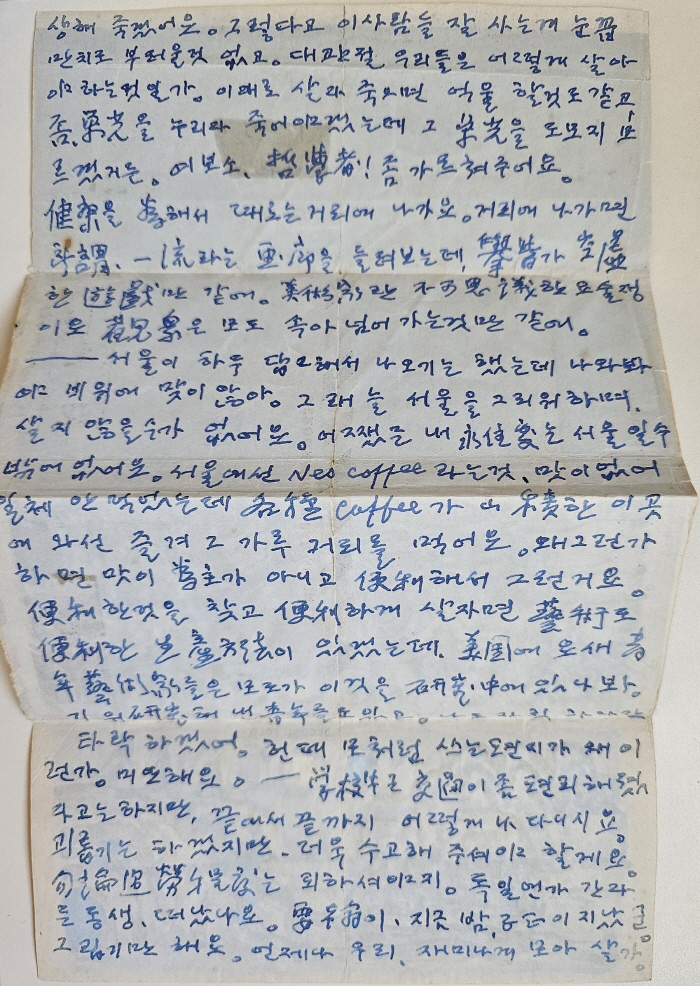 생해 죽겠어요. 그렇다고 이사람들 잘 사는게 눈꼽
만치도 부러울것 없고. 대관절 우리들은 어떻게 살아
야 라는것일가. 이대로 살다 죽으면 억울 할것도 같고
좀, 榮光을 누리다 죽어야겠는데 그 榮光을 도모지 모
르겠거든. 여보소, 哲學者! 좀 가르쳐주어요.
健康을 爲해서 때로는 거리에 나가요. 거리에 나가면
所謂. 一流라는 画廊을 들려보는데, 擧皆가
한 遊戱만 같애. 美術家란 不可思議한 요술쟁
이요 君衆은 모도 속아 넘어 가는것만 같애.
서울이 하두 답답해서 나오기는 했는데 나와봐
야 비위에 맞이 않아. 그래 늘 서울을 그리워 하며.
살지 않을수가 없어요. 어쨌든 내 永住處는 서울일수
밖에 없어요. 서울에선 Nes coffee 라는것, 맛이 없어
일체 안 먹었는데 各種 coffee가 한 이곳
에 와선 즐겨 그 가루 커피를 먹어요. 왜그런가
하면 맛이 爲主가 아니고 便利해서 그런거요.
便利한것을 찾고 便利하게 살자면 藝術도
便利한 生産方法이 있겠는데. 美国에 요새 靑
年 藝術家들은 모도가 이것을 研究中에 있나 보아.
타락 하겠어. 현때 모처럼 쓰는 편지가 왜 이
런가. 미안해요. 学校는 交通이 좀 편리해 졌
다고는 하지만, 끝에서 끝까지 어떻게 나 다니시요.
괴롭기는 하겠지만. 더욱 수고해 주셔야 할게요.
勿論過勞는 피하셔야지. 독일엔가 간다
든 동생. 떠났나요. 지금 밤. 이 지났군.
그립기만 해요. 언제나 우리. 재미나게 모아 살가.